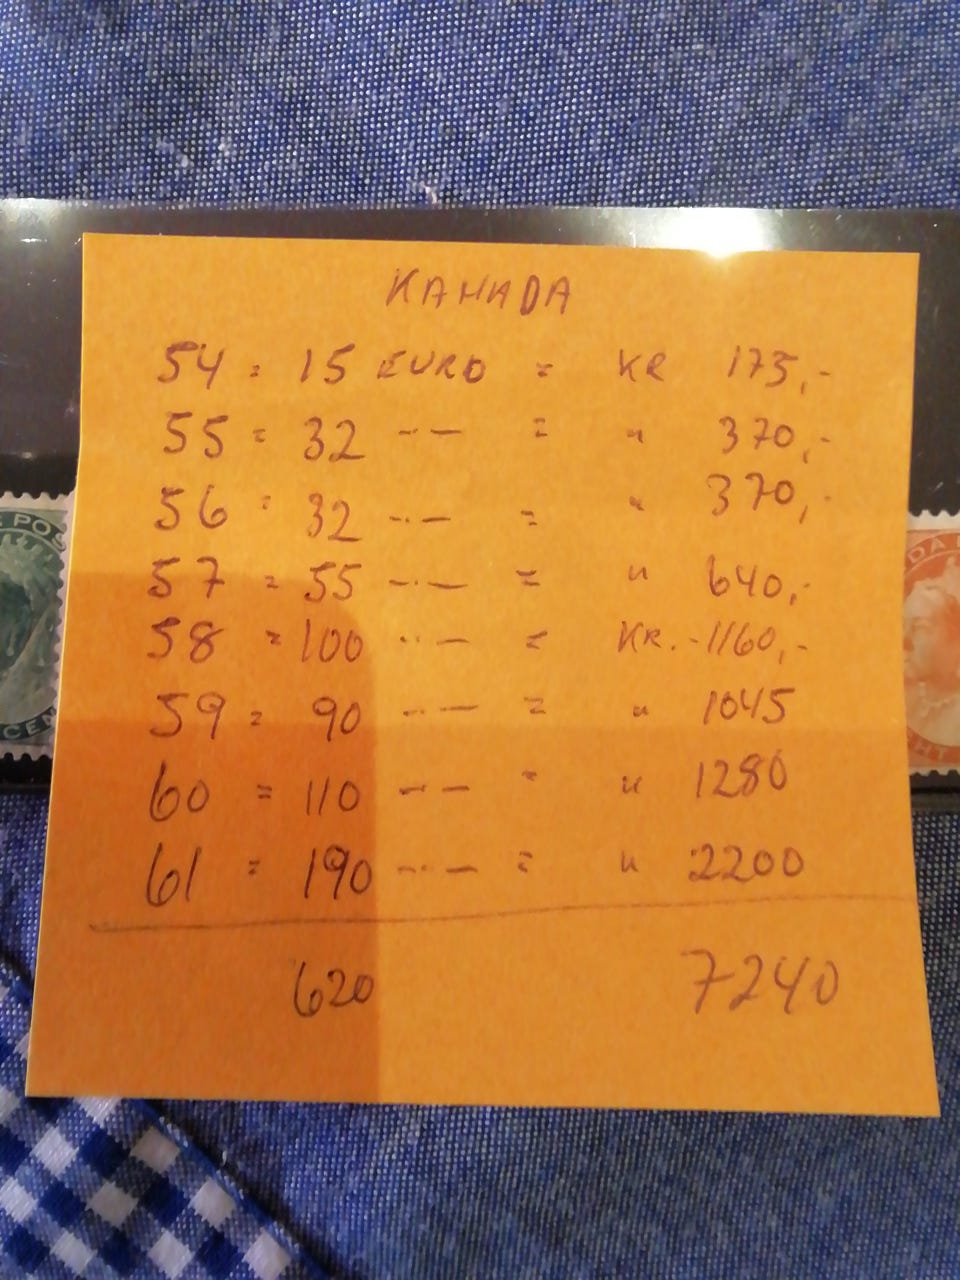 KANADA
54 = 15 EURO = KR 175,-
55 = 32 -"- = " 370,-
56 = 32 -"- = " 370,-
57 = 55 -"- = " 640,-
58 = 100 -"- = KR. -1160,-
59 = 90 -"- = " 1045
60 = 110 -"- = " 1280
61 = 190 -"- = " 2200
620 7240
POS
CEN
DA
HT